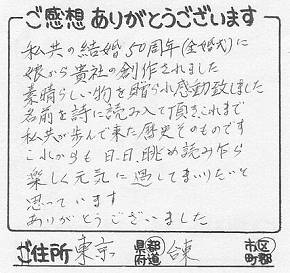 ご感想ありがとうございます
私共の結婚50周年(金婚式)に
娘から貴社の創作されました
素晴らしい物を贈られ感動致しました
名前を詩に読み入て頂きこれまで
私共が歩んで来た歴史そのものです
これからも日、日、眺め読み乍ら
楽しく元気に過してまいりたいと
思っています
ありがとうございました
ご住所 東京 都道府県 台東 市区町郡